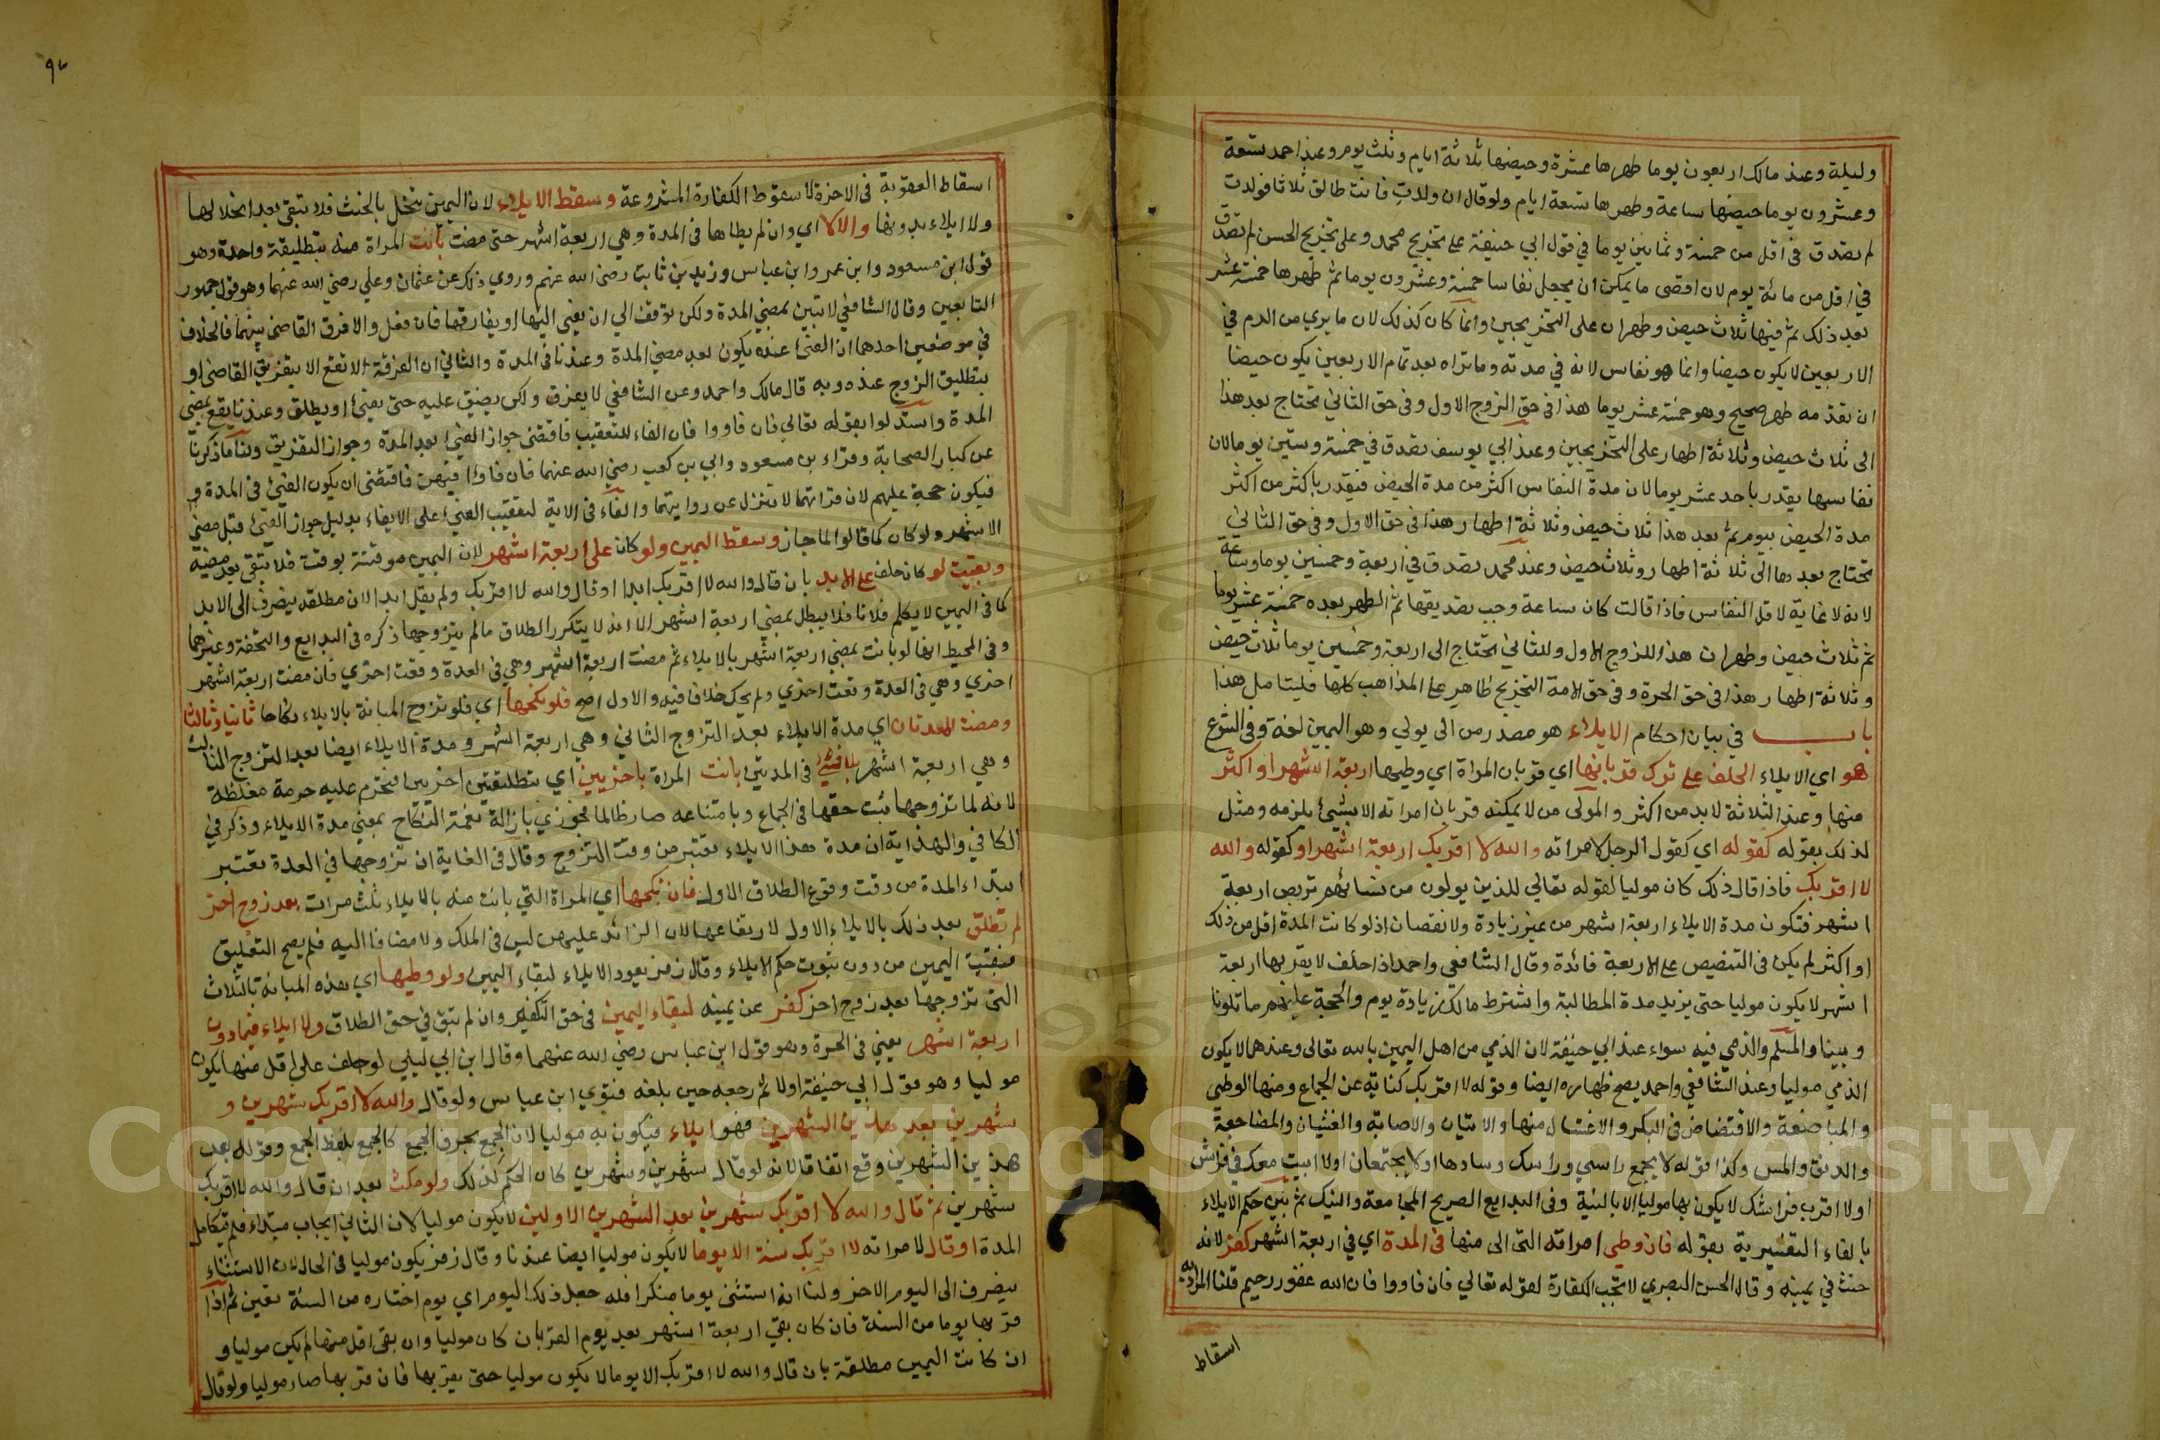 وليلة وعند مالك اربعون يوما طهرها عشرة وحيضها ثلاثة ايام وثلث يوم وعند احمد سبعة
وعشرون يوما حيضها ساعة وطهرها سبعة ايام ولو قال ان ولدت فانت طالق ثلاثا فولدت
لم يصدق في اقل من خمسة وثمانين يوما في قول ابي حنيفة على تخريج محمد وعلى تخريج الحسن لم تصدق
في اقل من مائة يوم لان اقصى ما يمكن ان يجعل نفاسها خمسة وعشرون يوما ثم طهرها خمسة عشر
بعد ذلك ثم فيها ثلاث حيض وطهران على التخريجين وانما كان كذلك لان ما يري من الدم في
الاربعين لا يكون حيضا وانما هو نفاس لانه في مدته وما تراه بعد تمام الاربعين يكون حيضا
ان تقدمه طهر صحيح وهو خمسة عشر يوما هذا في حق الزوج الاول وفي حق الثاني تحتاج بعد هذا
الى ثلاث حيض وثلاثة اطهار على التخريجين وعند ابي يوسف تصدق في خمسة وستين يوما لان
نفاسها يقدر باحد عشر يوما لان مدة النفاس اكثر من مدة الحيض فيقدر باكثر من اكثر
مدة الحيض بيوم ثم بعد هذا ثلاث حيض وثلاثة اطهار هذا في حق الاول وفي حق الثاني
تحتاج بعدها الى ثلاثة اطهار وثلاث حيض وعند محمد تصدق في اربعة وخمسين يوما وساعة
لانه لا غاية لاقل النفاس فاذا قالت كان ساعة وجب تصديقها ثم الطهر بعده خمسة عشر يوما
ثم ثلاث حيض وطهران هذا للزوج الاول وللثاني تحتاج الى اربعة وخمسين يوما ثلاث حيض
وثلاثة اطهار هذا في حق الحرة وفي حق الامة التخريج ظاهر على المذاهب كلها فليتامل هذا
باب في بيان احكام الايلاء هو مصدر من الى يولي وهو اليمين لغة وفي الشرع
هو اي الايلاء الحلف على ترك قربانها اي قربان المراة اي وطيها اربعة اشهر او اكثر
منها وعند الثلاثة لا بد من اكثر والمولى من لا يمكنه قربان امراته الا بشيئ يلزمه ومثل
لذلك بقوله كقوله اي كقول الرجل لامراته والله لا اقربك اربعة اشهر او كقوله والله
لا اقربك فاذا قال ذلك كان موليا لقوله تعالي للذين يولون من نسائهم تربص اربعة
اشهر فتكون مدة الايلاء اربعة اشهر من غير زيادة ولا نقصان اذ لو كانت المدة اقل من ذلك
او اكثر لم يكن في التنصيص على الاربعة فائدة وقال الشافعي واحمد اذا حلف لا يقربها اربعة
اشهر لا يكون موليا حتى يزيد مدة المطالبة واشترط مالك زيادة يوم والحجة عليهم ما تلونا
وبينا والمسلم والذمي فيه سواء عند ابي حنيفة لان الذمي من اهل اليمين بالله تعالى وعندهما لا يكون
الذمي موليا وعند الشافعي واحمد يصح ظهاره ايضا وقوله لا اقربك كناية عن الجماع ومنها الوطي
والمباضعة والافتضاض في البكر والاغتسال منها والاتيان والاصابة والغشيان والمضاجعة
والدنو والمس وكذا قوله لا يجمع راسي وراسك وسادها اولا يجتمعان اولا ابيت معك في فراش
اولا اقرب فراشك لا يكون بها موليا الا بالنية وفي البدايع الصريح المجامعة والنيك ثم بين حكم الايلاء
بالفاء التفسيرية بقوله فان وطي امراته التي الى منها في المدة اي في اربعة اشهر كفر لانه
حنث في يمينه وقال الحسن البصري لا تجب الكفارة لقوله تعالي فان فاووا فان الله غفور رحيم قلنا المراد به
اسقاط
اسقاط العقوبة في الاخرة لا سقوط الكفارة المشروعة وسقط الايلاء لان اليمين تنحل بالحنث فلا تبقى بعد انحلالها
ولا ايلاء بدونها والا لا اي وان لم يطاها في المدة وهي اربعة اشهر حتى مضت بانت المراة منه بتطليقة واحدة وهو
قول ابن مسعود وابن عمر وابن عباس وزيد بن ثابت رضي الله عنهم وروي ذلك عن عثمان وعلي رضي الله عنهما وهو قول جمهور
التابعين وقال الشافعي لا تبين بمضي المدة ولكن توقف الي ان يفيي اليها او يفارقها فان فعل والا فرق القاضي بينهما فالخلاف
في موضعين احدهما ان الفيئ عنده يكون بعد مضي المدة وعندنا في المدة والثاني ان الفرقة لا تقع الا بتفريق القاضي او
بتطليق الزوج عنده وبه قال مالك واحمد وعن الشافعي لا يفرق ولكن يضيق عليه حتى يفيئ او يطلق وعندنا يقع بمضي
المدة واستدلوا بقوله تعالي فان فاووا فان الفاء للتعقيب فاقتضى جواز الفيئ بعد المدة وجواز التفريق ولنا ما ذكرنا
عن كبار الصحابة وقراءة بن مسعود وابي بن كعب رضي الله عنهما فان فاوا فيهن فاقتضى ان يكون الفيئ في المدة و
فيكون حجة عليهم لان قراتهما لا تنزل عن روايتهما والفاء في الاية لتعقيب الفيئ على الايلاء بدليل جواز الفيئ قبل مضي
الاشهر ولو كان كما قالوا لما جاز وسقط اليمين ولو كان على اربعة اشهر لان اليمين موقتة بوقت فلا تبقى بعد مضيه
وبقيت لو كان حلف على الابد بان قال والله لا اقربك ابدا او قال والله لا اقربك ولم يقل ابدا لان مطلقه ينصرف الى الابد
كما في اليمين لا يكلم فلانا فلا يبطل بمضي اربعة اشهر الا انه لا يتكرر الطلاق ما لم يتزوجها ذكره في البدايع والتحفة وغيرهما
وفي المحيط انها لو بانت بمضي اربعة اشهر بالايلاء ثم مضت اربعة اشهر وهي في العدة وقعت اخري فان مضت اربعة اشهر
اخري وهي في العدة وقعت اخري ولم يحك خلافا فيه والاول اصح فلو نكحها اي فلو تزوج المبانة بالايلاء نكاحا ثانيا وثالثا
ومضت المدتان اي مدة الايلاء بعد التزوج الثاني وهي اربعة اشهر ومدة الايلاء ايضا بعد التزوج الثالث
وهي اربعة اشهر بلا فيئ في المدتين بانت المراة باخريين اي بتطليقتين اخريين فتحرم عليه حرمة مغلظة
لانه لما تزوجها ثبت حقها في الجماع وبامتناعه صار ظالما فجوزي بازالة نعمة النكاح بمضي مدة الايلاء وذكر في
الكافي والهداية ان مدة هذا الايلاء تعتبر من وقت التزوج وقال في الغاية ان تزوجها في العدة تعتبر
ابتداء المدة من وقت وقوع الطلاق الاول فان نكحها اي المراة التي بانت منه بالايلاء ثلث مرات بعد زوج اخر
لم تطلق بعد ذلك بالايلاء الاول لارتفاعها لان الزائد عليهن ليس في الملك ولا مضافا اليه فلم يصح التعليق
فبقية اليمين من دون ثبوت حكم الايلاء وقال زفر يعود الايلاء لبقاء اليمين ولو وطيها اي هذه المبانة بالثلاث
التي تزوجها بعد زوج اخر كفر عن يمينه لبقاء اليمين في حق التكفير وان لم تبق في حق الطلاق ولا ايلاء فيما دون
اربعة اشهر يعني في الحرة وهو قول ابن عباس رضي الله عنهما وقال ابن ابي ليلي لو حلف على اقل منها يكون
موليا وهو قول ابي حنيفة اولا ثم رجع حين بلغه فتوي ابن عباس ولو قال والله لا اقربك شهرين و
شهرين بعد هذين الشهرين فهو ايلاء فيكون به موليا لان الجمع بحرف الجمع كالجمع بلفظ الجمع وقوله بعد
هذين الشهرين وقع اتفاقا لانه لو قال شهرين وشهرين كان الحكم كذلك ولو مكث بعد ان قال والله لا اقربك
شهرين ثم قال والله لا اقربك شهرين بعد الشهرين الاولين لا يكون موليا لان الثاني ايجاب مبتداء فلم تتكامل
المدة او قال لامراته لا اقربك سنة الا يوما لا يكون موليا ايضا عندنا وقال زفر يكون موليا في الحال لان الاستثناء
ينصرف الى اليوم الاخر ولنا انه استثنى يوما منكرا فله جعل ذلك اليوم اي يوم اختاره من السنة تعين ثم اذا
قربها يوما من السنة فان كان بقي اربعة اشهر بعد يوم القربان كان موليا وان بقى اقل منها لم يكن موليا و
ان كانت اليمين مطلقة بان قال والله لا اقربك الا يوما لا يكون موليا حتى يقربها فان قربها صار موليا ولو قال
Copyright © King Saud University